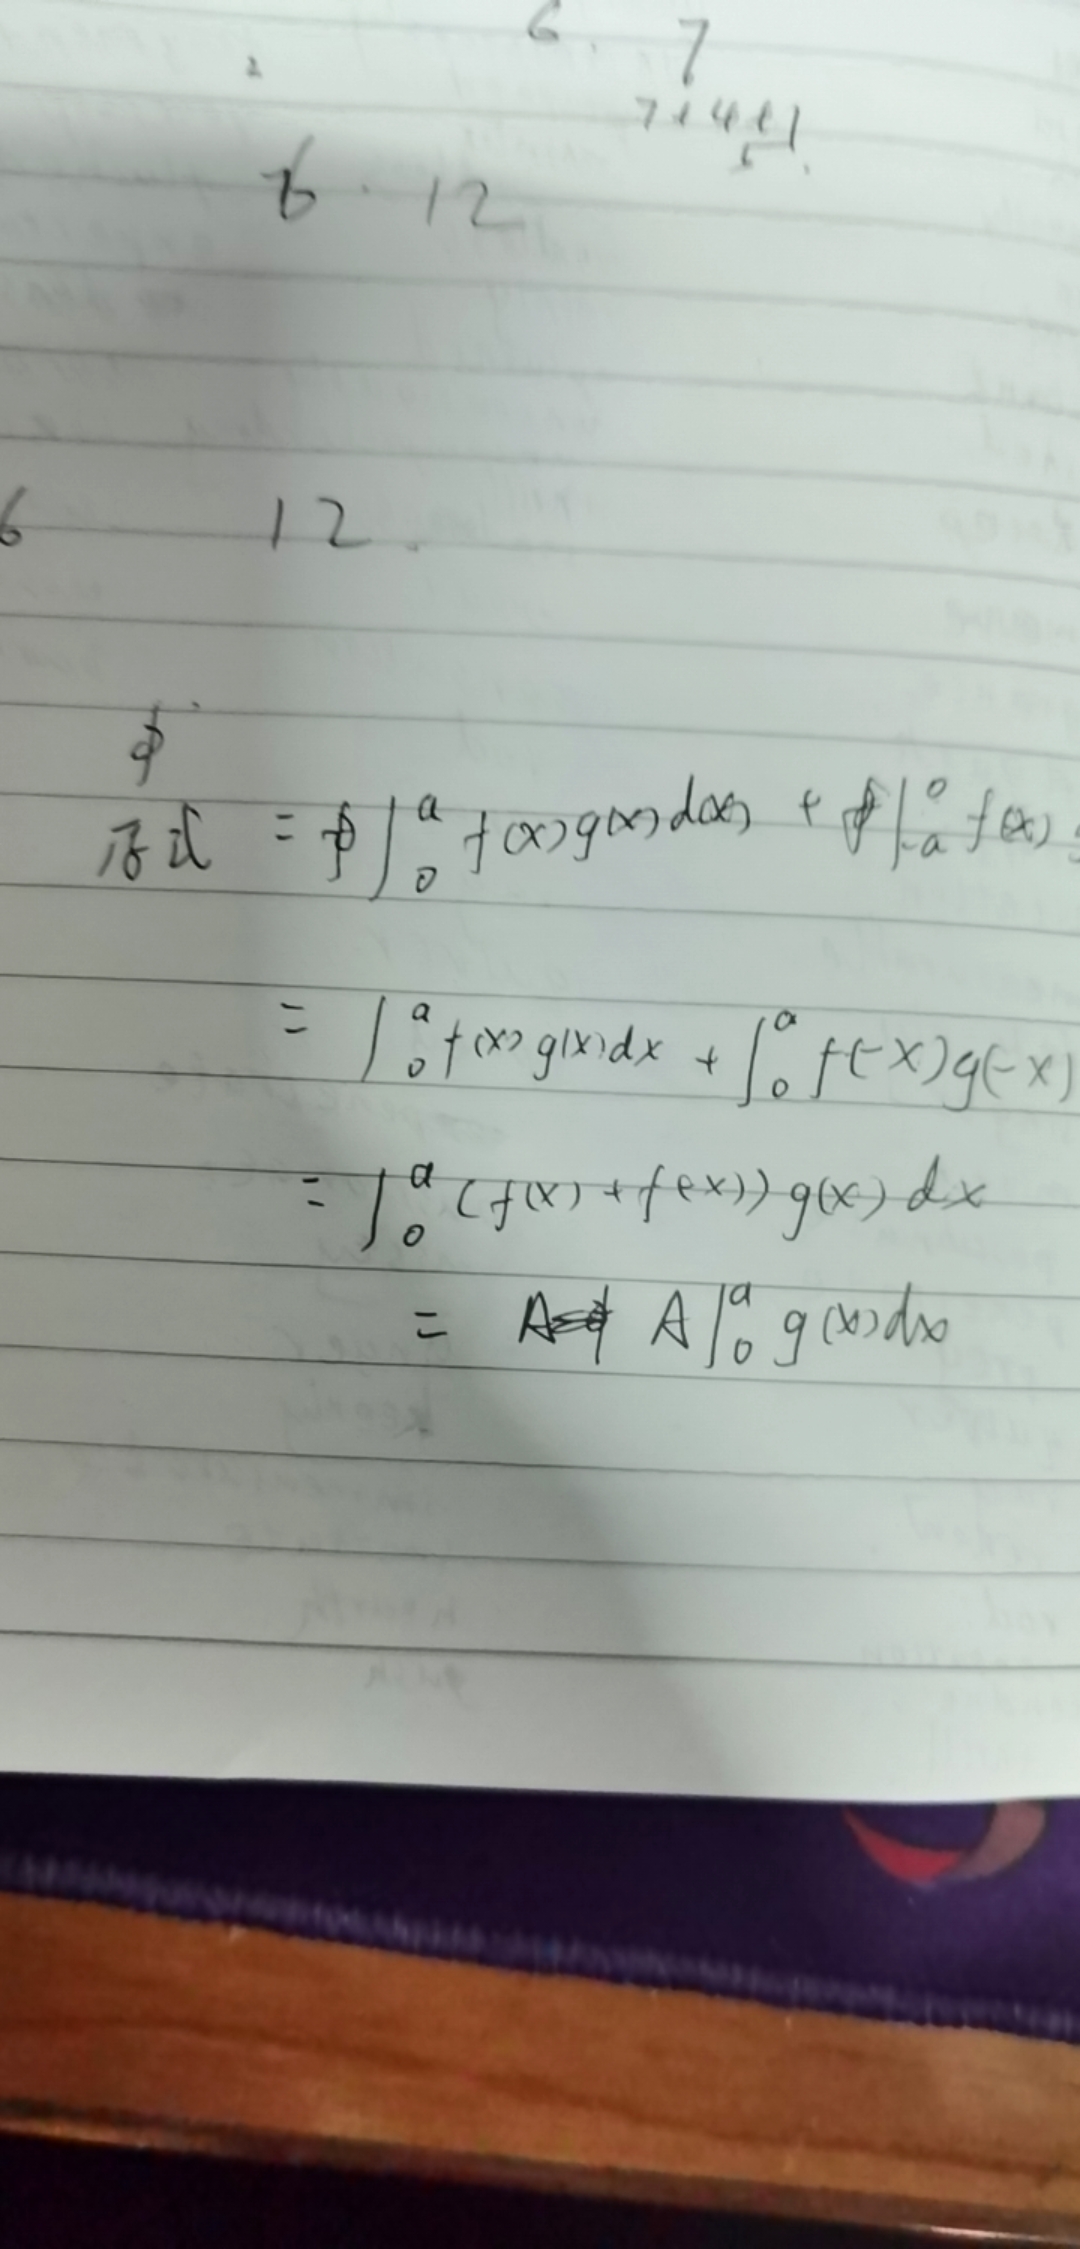 6. 7
7+4+1
6 . 12
6 12.
原式 = ∫₀ᵃ f(x)g(x)d(x) + ∫₋ₐ⁰ f(x)
= ∫₀ᵃ f(x)g(x)dx + ∫₀ᵃ f(-x)g(-x)
= ∫₀ᵃ (f(x)+f(-x))g(x)dx
= A A∫₀ᵃ g(x)dx